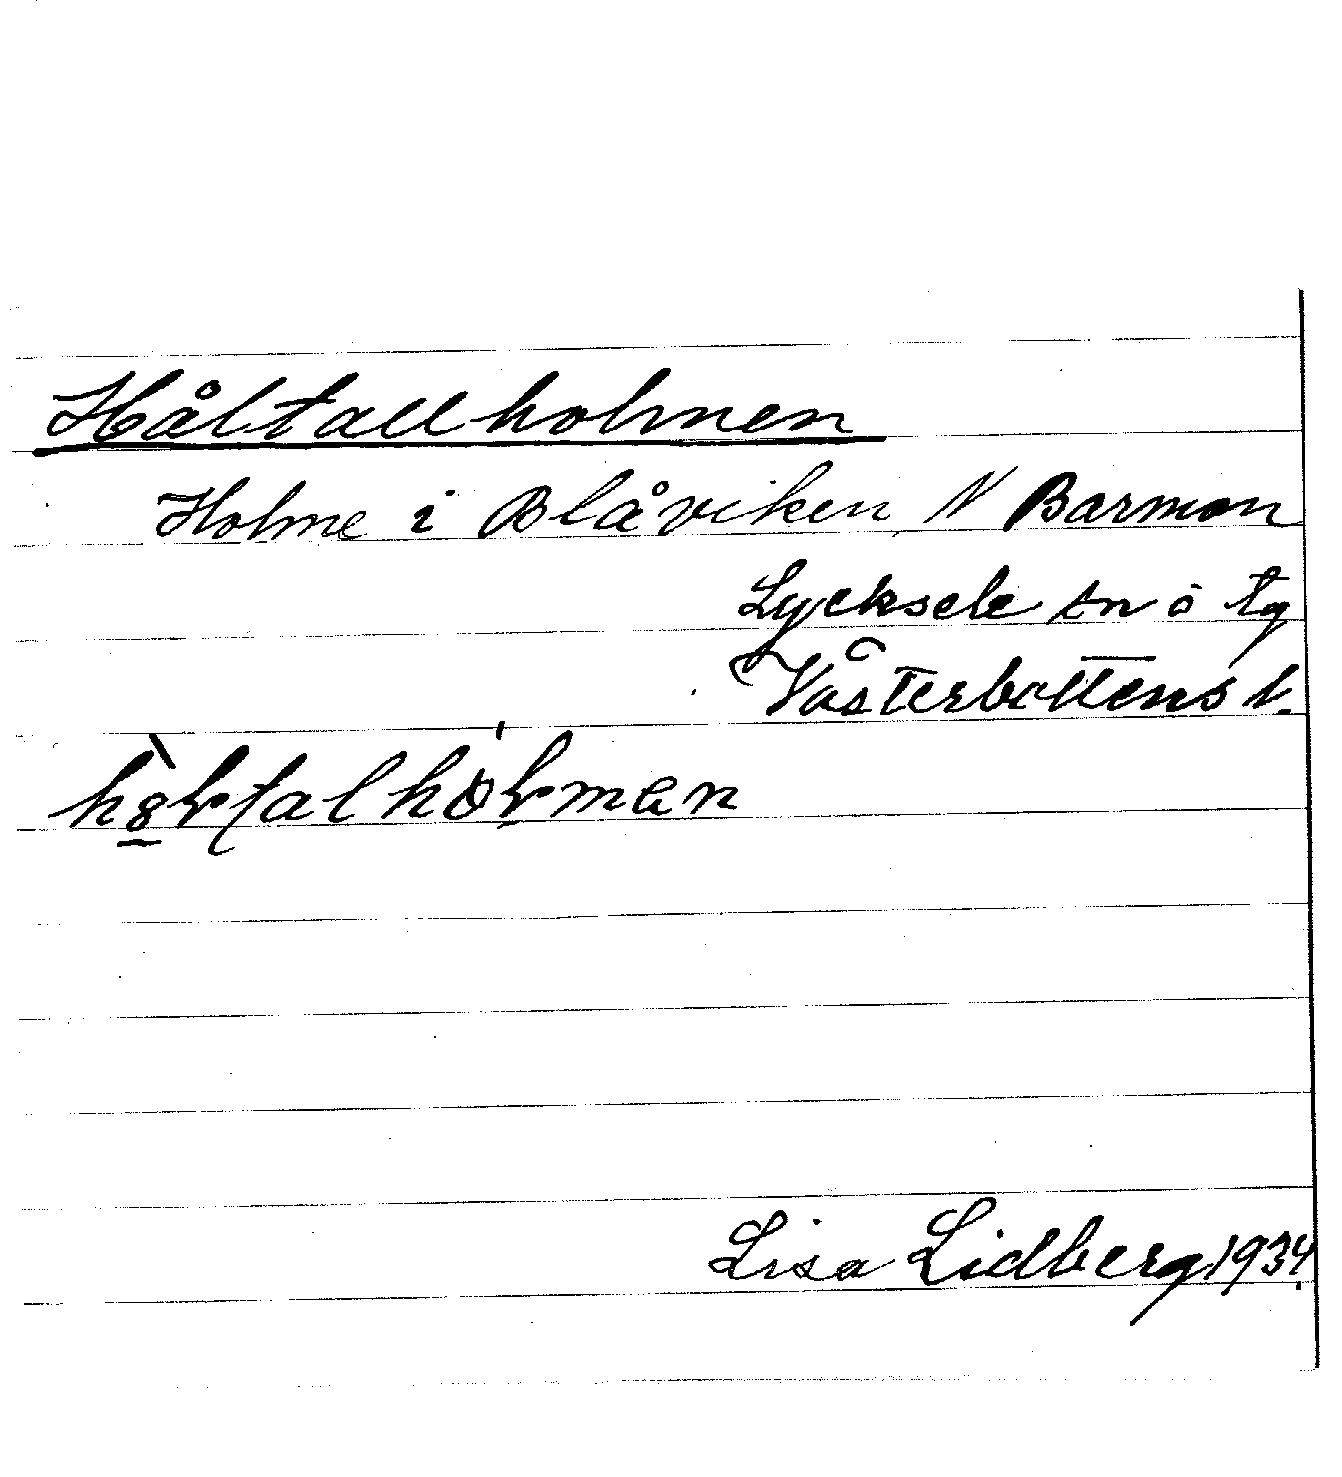 Håltallholmen
Holme i Blåviken, N Barman
Lycksele sn o tg
Västerbottens l.
Lisa Lidberg 1934.